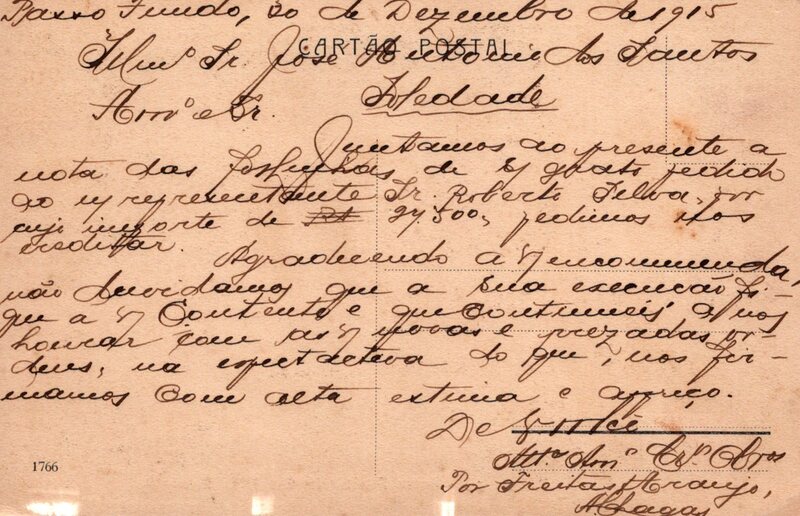 Passo Fundo, 20 de Dezembro de 1915
CARTÃO POSTAL
Illmº Sr. José Antonio dos Santos
Amº e Sr. Soledade
Juntamos ao presente a
nota das folhinhas de s/ grato pedido
ao n/ representante Sr. Roberto Silva, por
cujo importe de 27.500, pedimos nos
creditar.
Agradecendo a s/ encommenda,
não duvidamos que a sua execução fi-
que a s/ contento e que continueis a nos
honrar com as s/ novas e prezadas or-
dens, na espectativa do que, nos fir-
mamos com alta estima e apreço.
De
Attº Amº Crº Obros
Por Freitas Araujo,
A. Chagas
1766